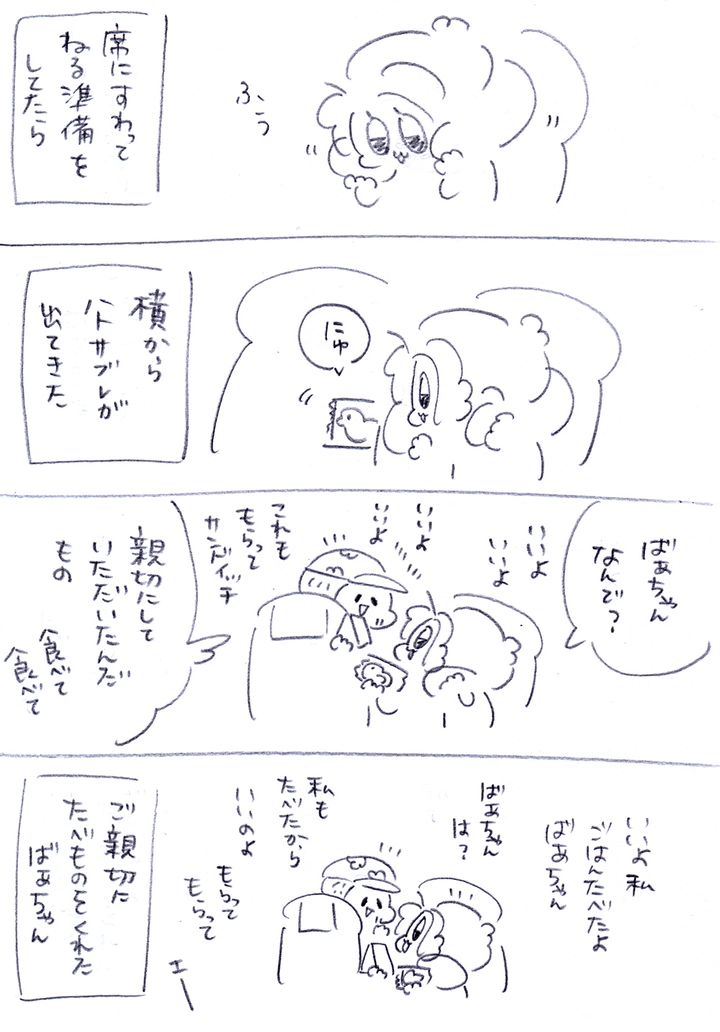 席にすわって
ねる準備を
してたら
ふぅ
横から
ハトサブレが
出てきた
にゅ
ばぁちゃん
なんで?
いいよ
いいよ
いいよ
いいよ
これも
もらって
サンドイッチ
親切にして
いただいたんだ
もの
食べて
食べて
いいよ私
ごはんたべたよ
ばぁちゃん
ばぁちゃん
は?
私も
たべたから
いいのよ
もらって
もらって
エー
ご親切に
たべものをくれた
ばぁちゃん